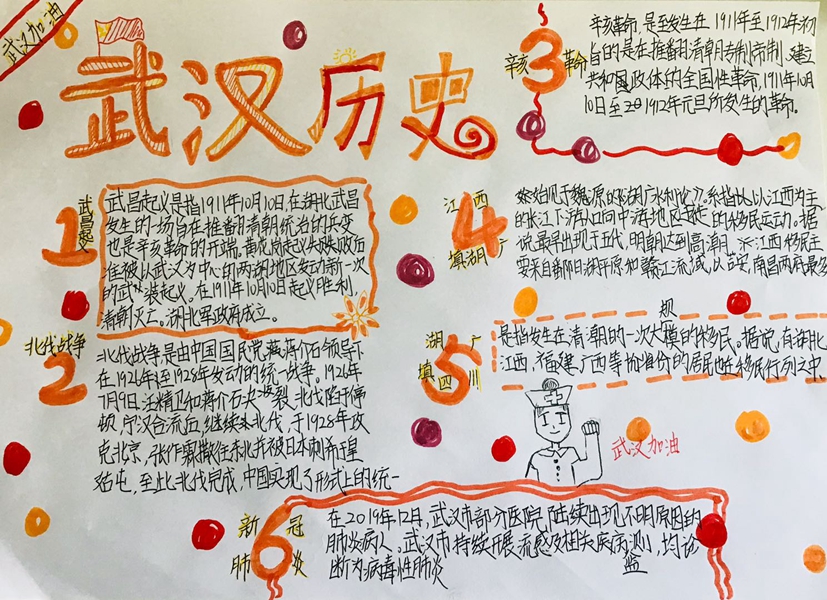 武汉加油
武汉历史
1
武昌起义
武昌起义是指1911年10月10日在湖北武昌
发生的一场旨在推翻清朝统治的兵变
也是辛亥革命的开端。黄花岗起义失败后
谁被以武汉为中心的两湖地区发动新一次
的武装起义。在1911年10月10日起义胜利,
清朝灭亡。湖北军政府成立。
北伐战争
2
北伐战争是由中国国民党蒋介石领导下
在1926年至1928年发动的统一战争。1926年
7月9日汪精卫和蒋介石决裂,北伐陷于停
顿,宁汉合流后,继续北伐,于1928年攻
克北京,张作霖撤往东北并被日本刺杀于皇
姑屯,至此北伐完成,中国实现了形式上的统一
辛亥3革命
辛亥革命,是至发生在1911年至1912年初
旨的是在推翻清朝专制帝制、建立
共和国政体的全国性革命,1911年10月
10日至1912年元旦所发生的革命。
江西
4
填湖广
始见于魏源的《湖广水利论》系指以江西为主
的长江下游人口向中游地区迁徙的移民运动。据
说最早出现于五代,明朝达到高潮,江西移民主
要来自鄱阳湖平原和赣江流域,以吉安,南昌两府最多
湖广
5
填四川
是指发生在清朝的一次大规模的移民。据说,有湖北
江西,福建广西等省份的居民也迁移民行列之中
武汉加油
新冠
6
肺炎
在2019年12月,武汉市部分医院陆续出现不明原因的
肺炎病人。武汉市持续开展流感及相关疾病监测,均诊
断为病毒性肺炎